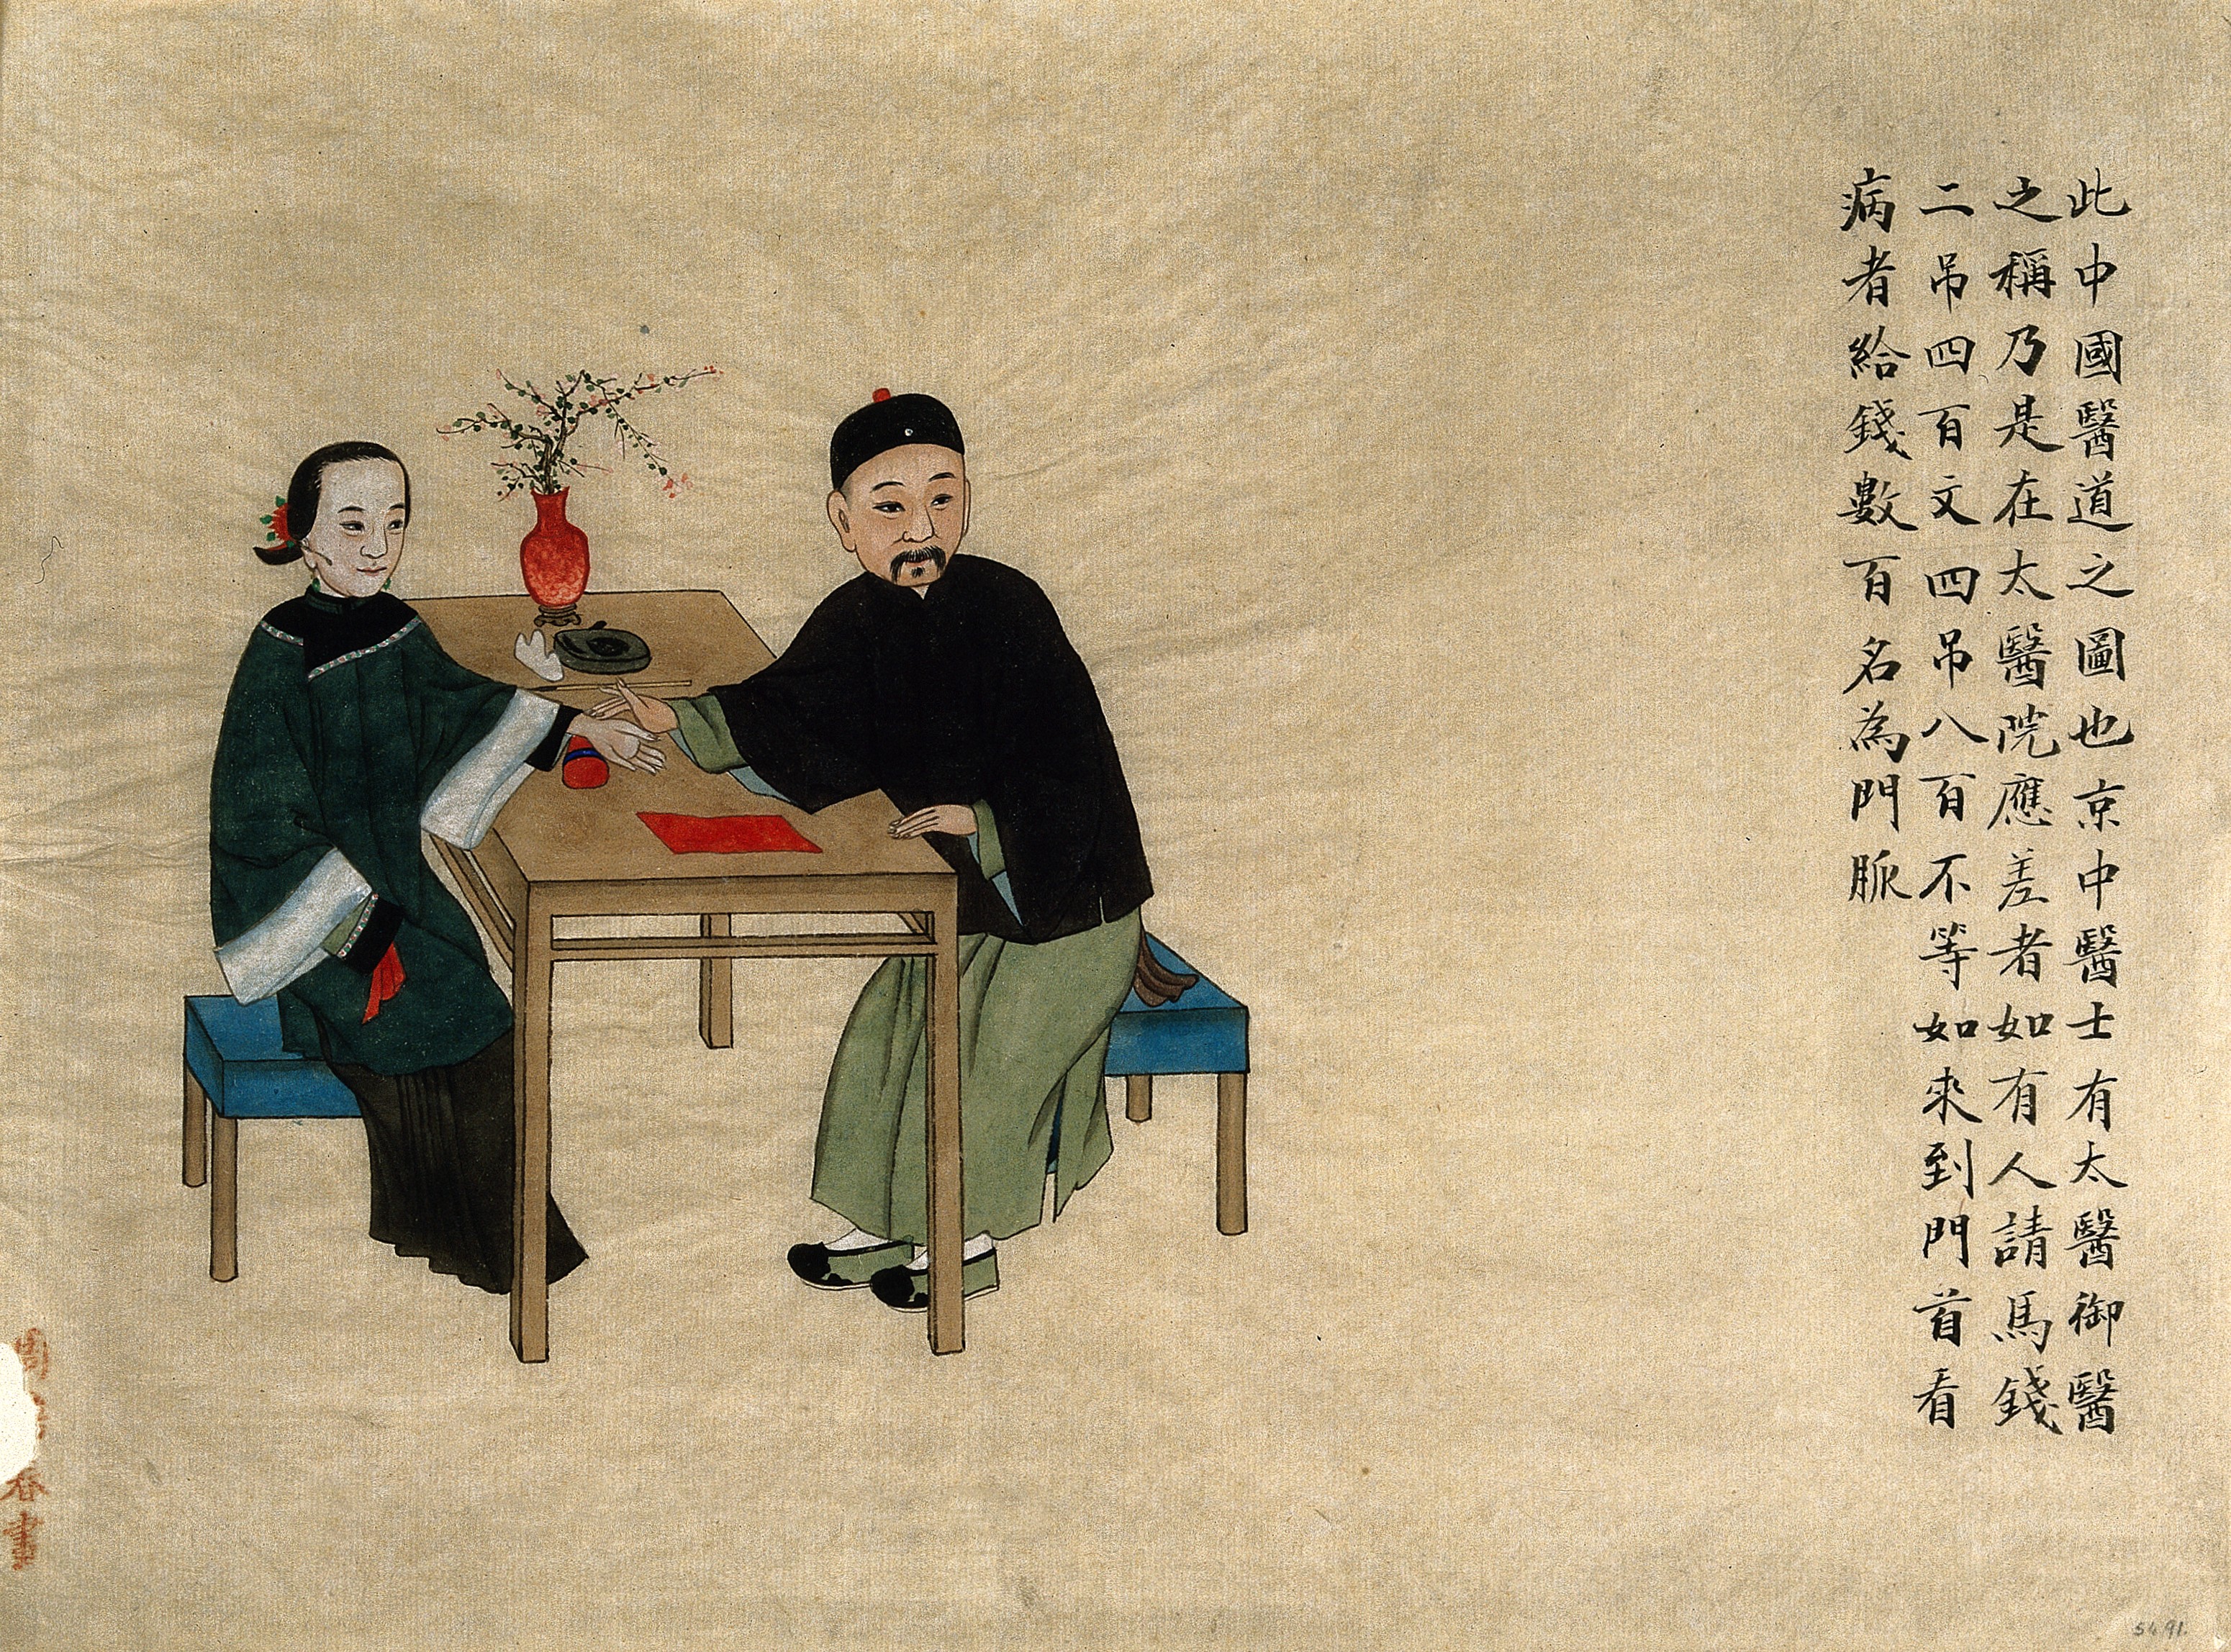 此中國醫道之圖也京中醫士有太醫御醫
之稱乃是在太醫院應差者如有人請馬錢
二吊四百文四吊八百不等如來到門首看
病者給錢數百名為門脈
周 春畫
5491